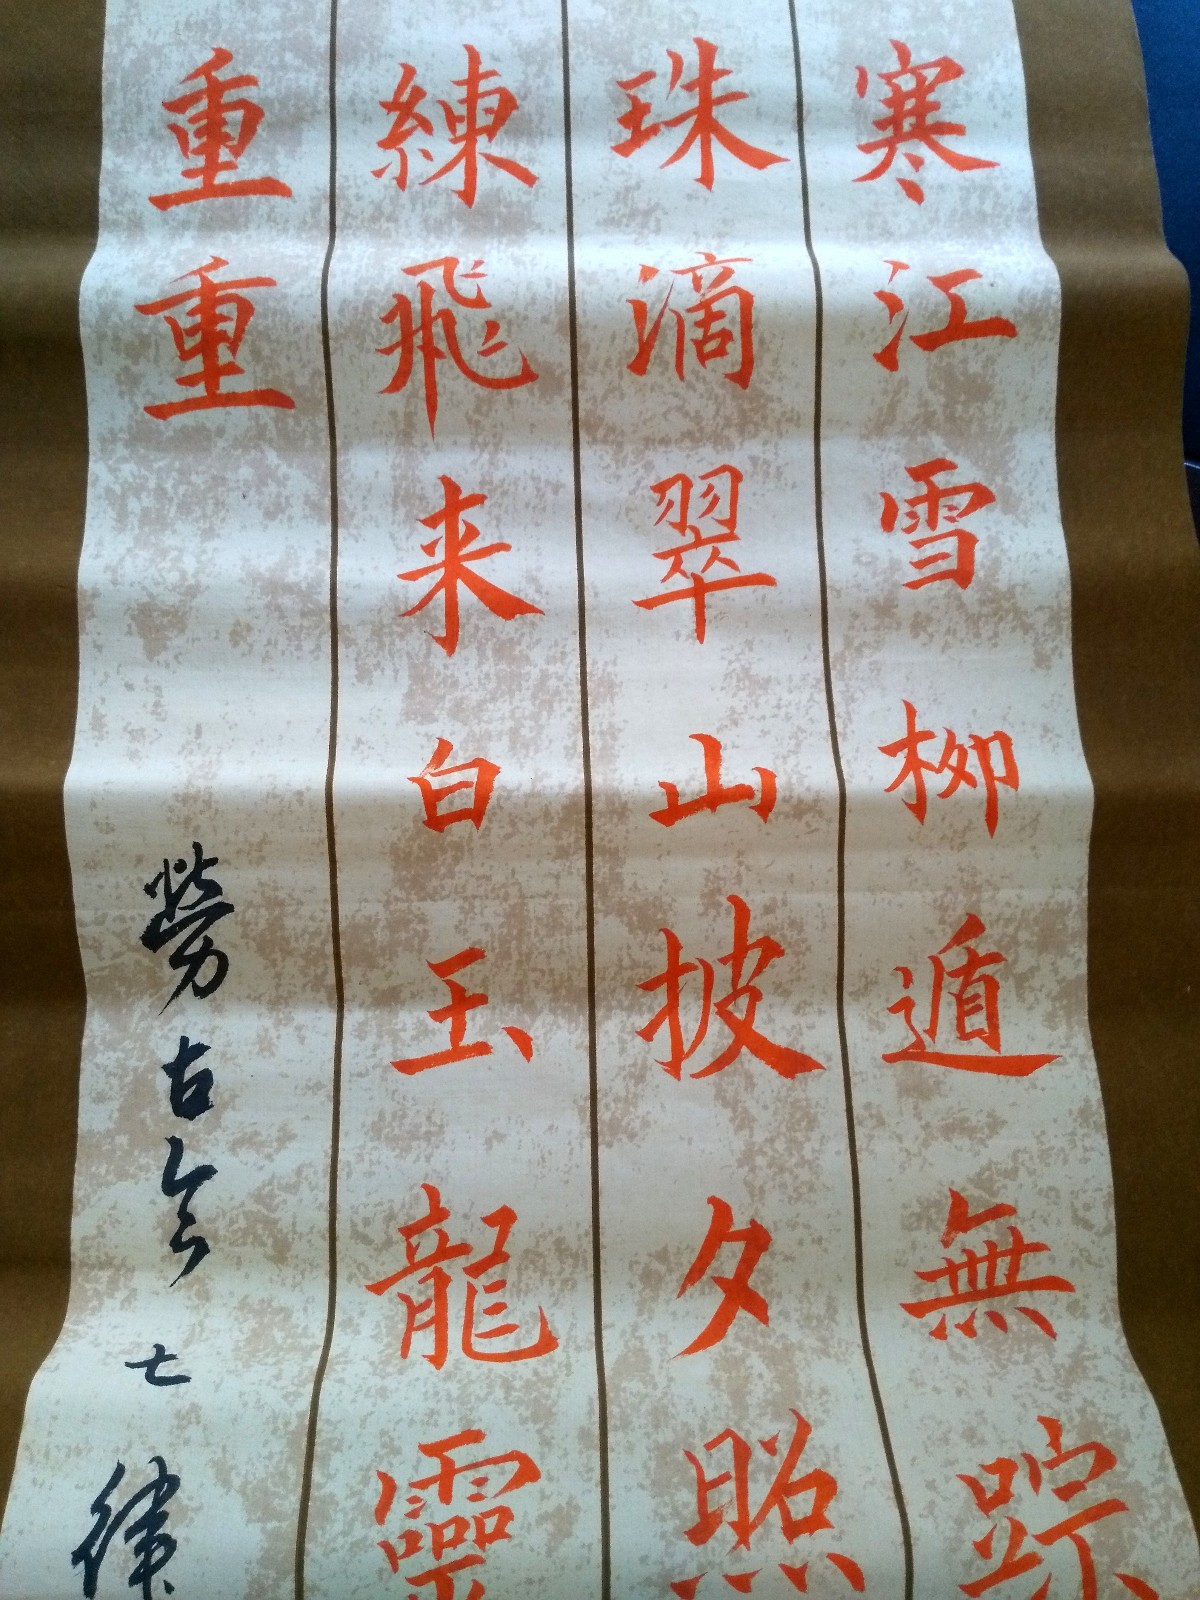 寒江雪柳遁無踪
珠滴翠山披夕照
練飛来白玉龍靈
重重
勞古今七律